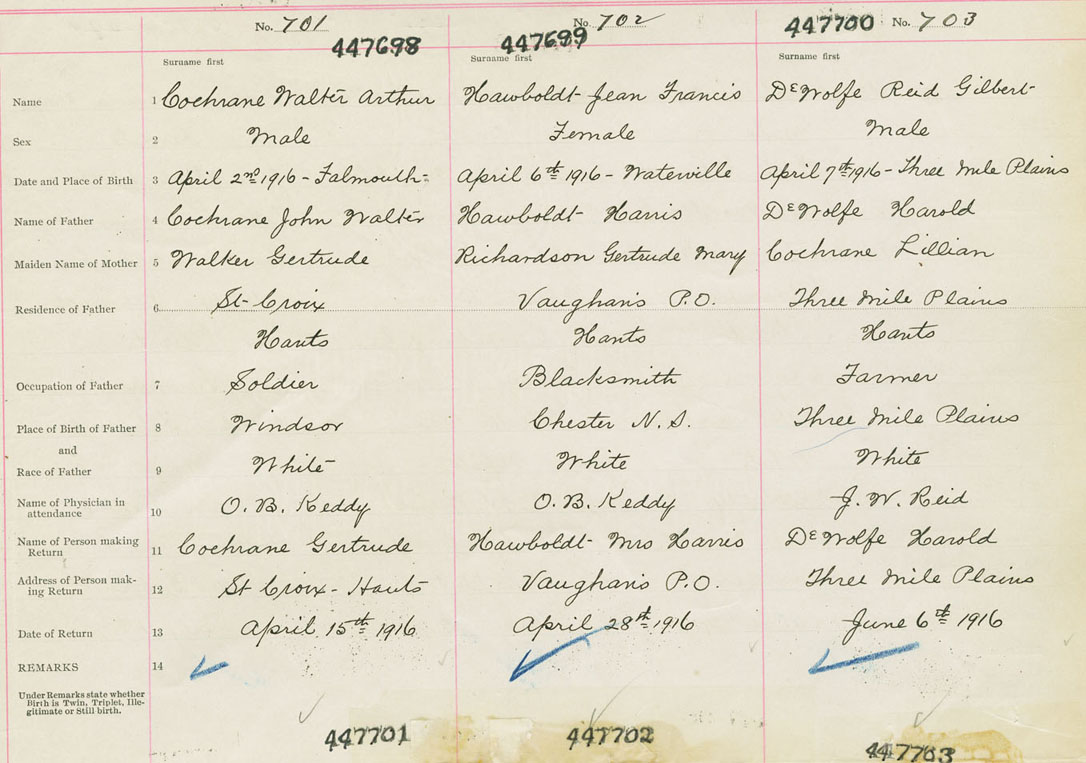 No. 701 No. 702 No. 703
447698 447699 447700
Surname first Surname first Surname first
Name 1 Cochrane Walter Arthur Hawboldt Jean Francis DeWolfe Reid Gilbert
Sex 2 Male Female Male
Date and Place of Birth 3 April 2nd 1916 - Falmouth - April 6th 1916 - Waterville April 7th 1916 - Three Mile Plains
Name of Father 4 Cochrane John Walter Hawboldt Harris DeWolfe Harold
Maiden Name of Mother 5 Walker Gertrude Richardson Gertrude Mary Cochrane Lillian
Residence of Father 6 St Croix Vaughan's P.O. Three Mile Plains
Hants Hants Hants
Occupation of Father 7 Soldier Blacksmith Farmer
Place of Birth of Father 8 Windsor Chester N.S. Three Mile Plains
and
Race of Father 9 White White White
Name of Physician in
attendance 10 O. B. Keddy O. B. Keddy J. W. Reid
Name of Person making
Return 11 Cochrane Gertrude Hawboldt Mrs Harris DeWolfe Harold
Address of Person mak-
ing Return 12 St Croix - Hants Vaughan's P.O. Three Mile Plains
Date of Return 13 April 15th 1916 April 28th 1916 June 6th 1916
REMARKS 14
Under Remarks state whether
Birth is Twin, Triplet, Ille-
gitimate or Still birth.
447701 447702 447703